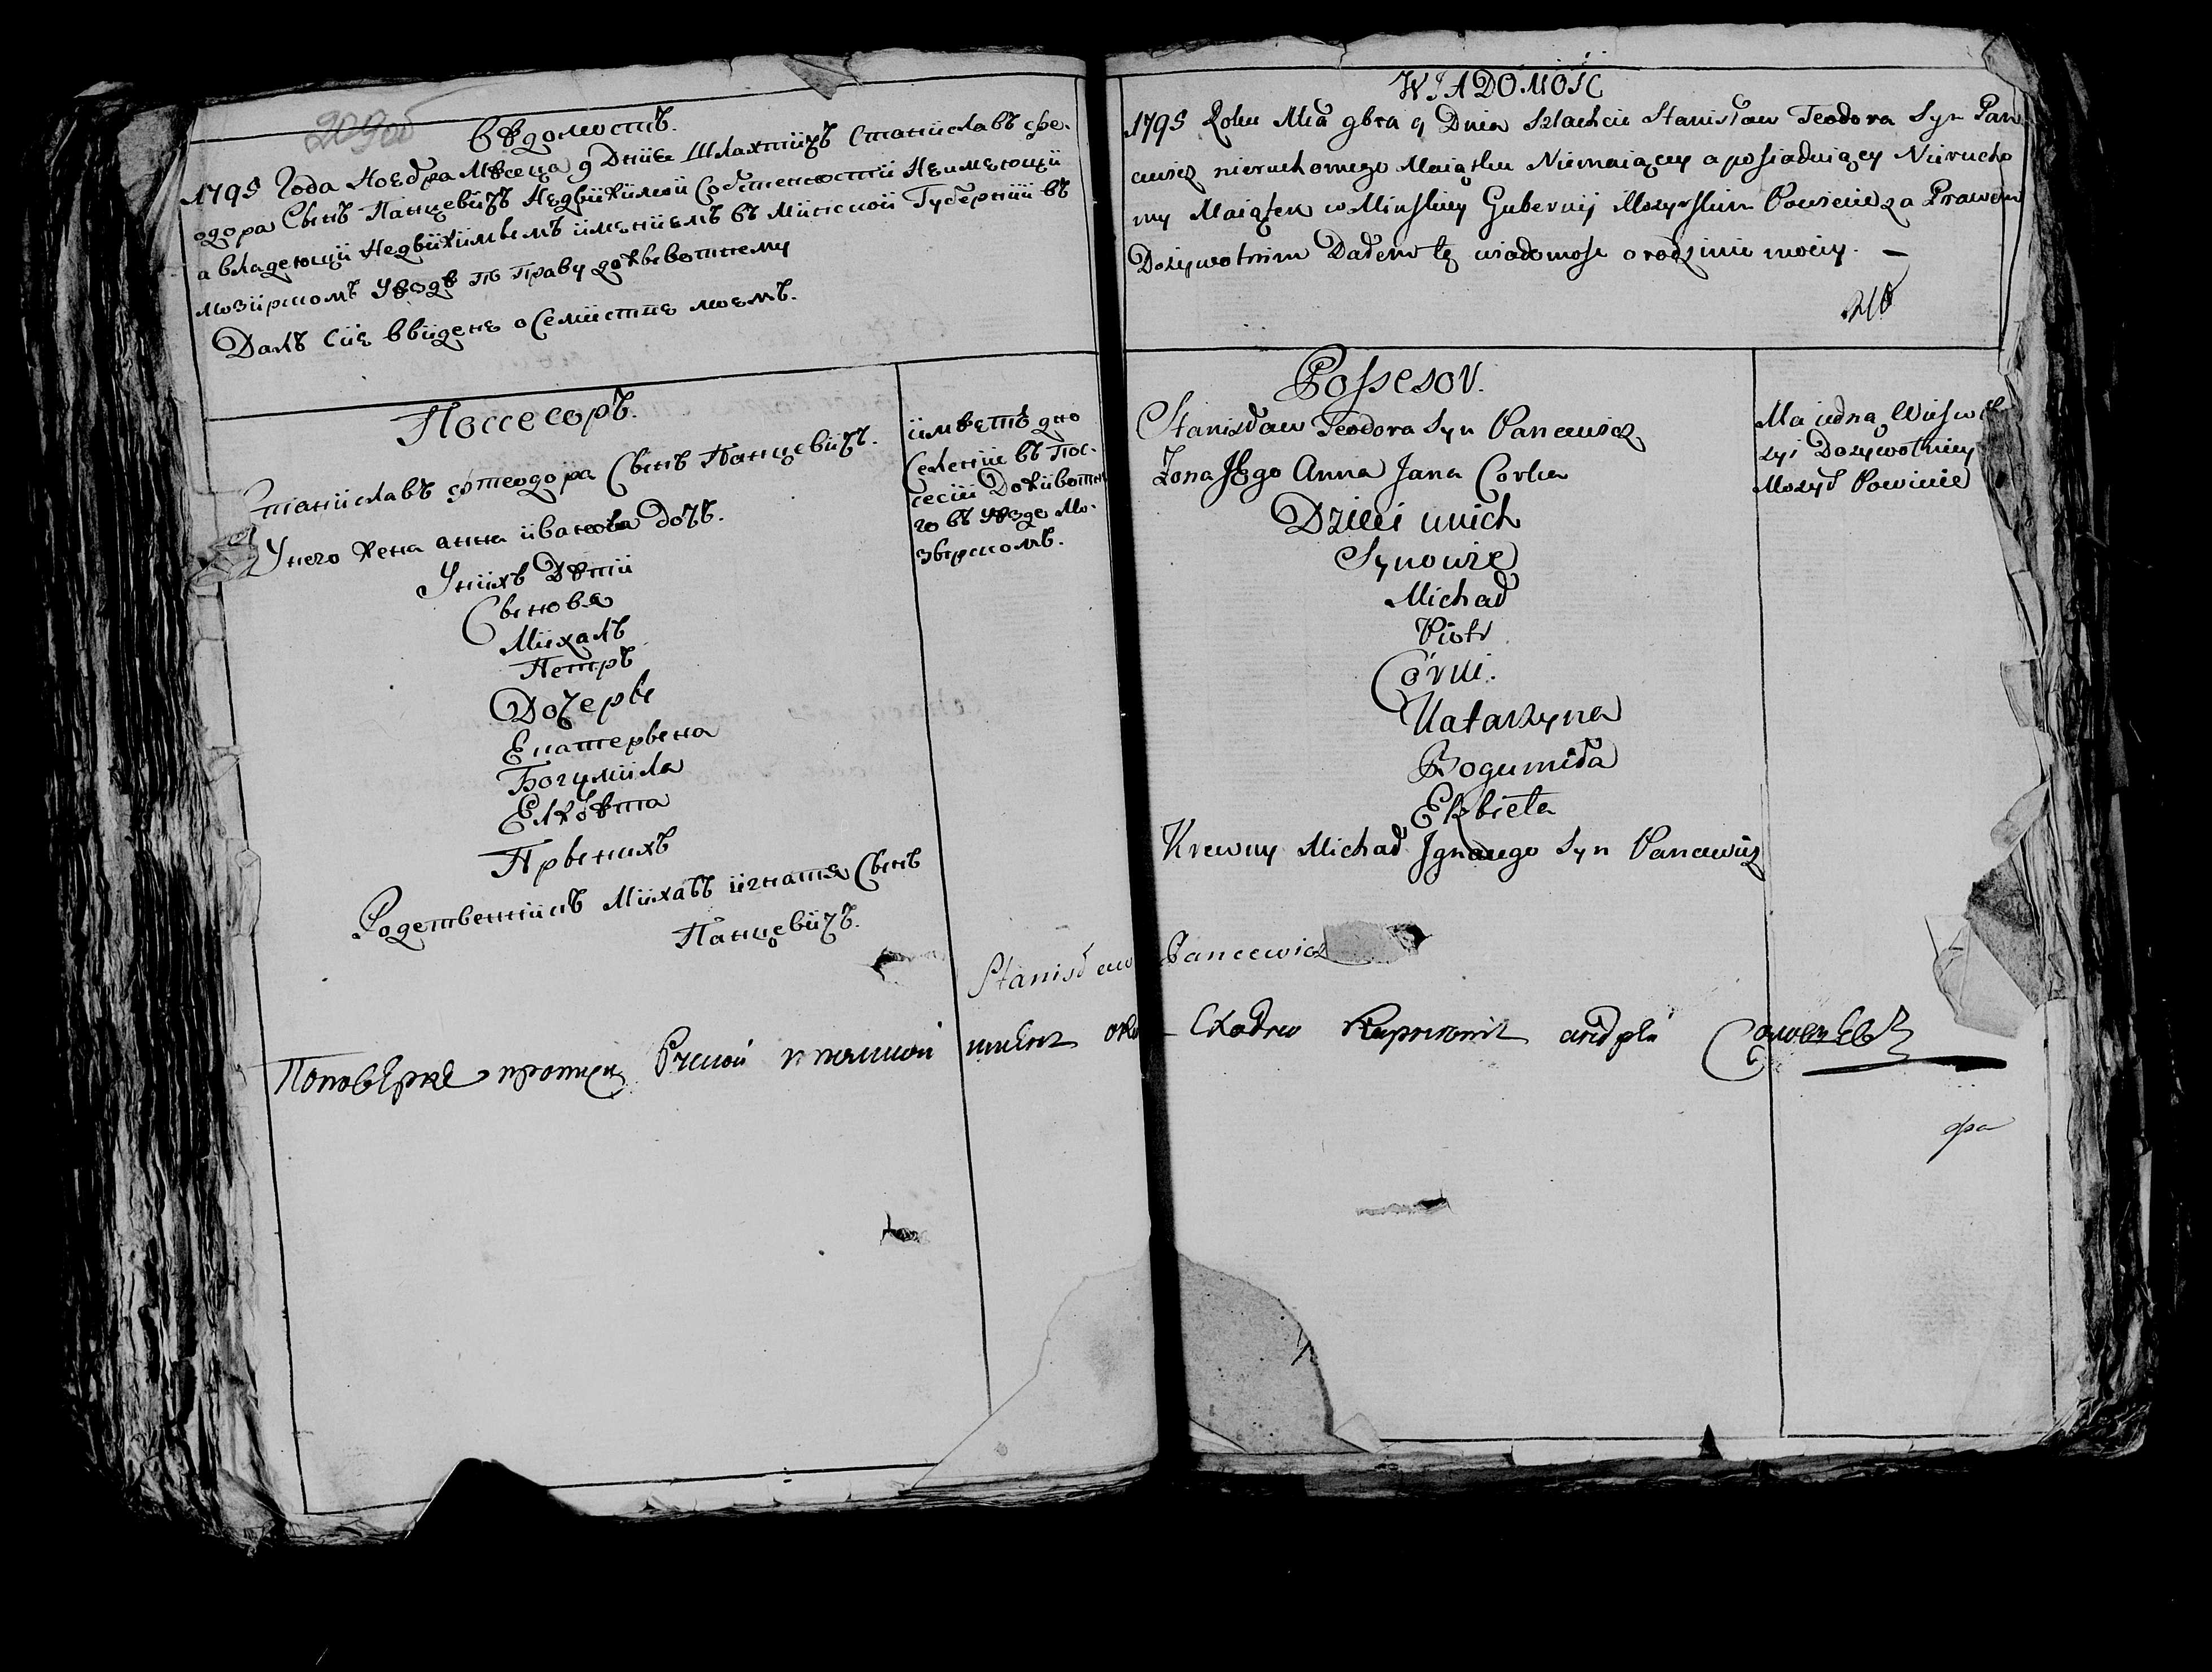 209об
Вѣдомостъ.
1795 Года Ноебра Мѣсеца 9 Дние Шлахтичъ Станиславъ Фе-
одора Сынъ Панцевичъ Недвижимой Собственности Неимеющи
а владеющи Недвижимымъ имениемъ въ Минской Губернии въ
мозирскомъ Уѣздѣ По Праву доживотнему
Далъ Сие ввидене о Семистве моемъ.
Поссесоръ.
Станиславъ Феодора Сынъ Панцевичъ.
Унего жена анна иванова дочъ.
Унихъ Дѣти
Сынове
Михалъ
Петръ
Дочеры
Екатерына
Богумила
Елжбѣта
Родственникъ Михалъ игнатя Сынъ
Панцевичъ.
имѣетъ дно
Селение въ Пос-
сесии Доживотне
го въ Уѣзде Мо-
зырскомъ.
WIADOMOSC
1795 Roku Mca 9bra 9 Dnia Szlachcic Stanisław Teodora Syn Pan
cewicz nieruchomego Maiątku Niemaiący a posiadaiący Nierucho
my Maiątek w Minskiey Gubernij Mozyrskim Powiecie za Prawem
Dozywotnim Dałem tę wiadomosc o rodzinie moiey. —
210
Possesor.
Stanisław Teodora Syn Pancewicz
Zona JEgo Anna Jana Corka
Dzieci unich
Synowie
Michał
Piotr
Córki.
Katarzyna
Bogumiła
Elzbieta
Krewny Michał Ignacego Syn Pancewicz
Ma iedną Wies w
syi Dozywotniey
Mozyr Powiecie
Stanisław Pancewicz
Поповѣрке противу Руской и полской